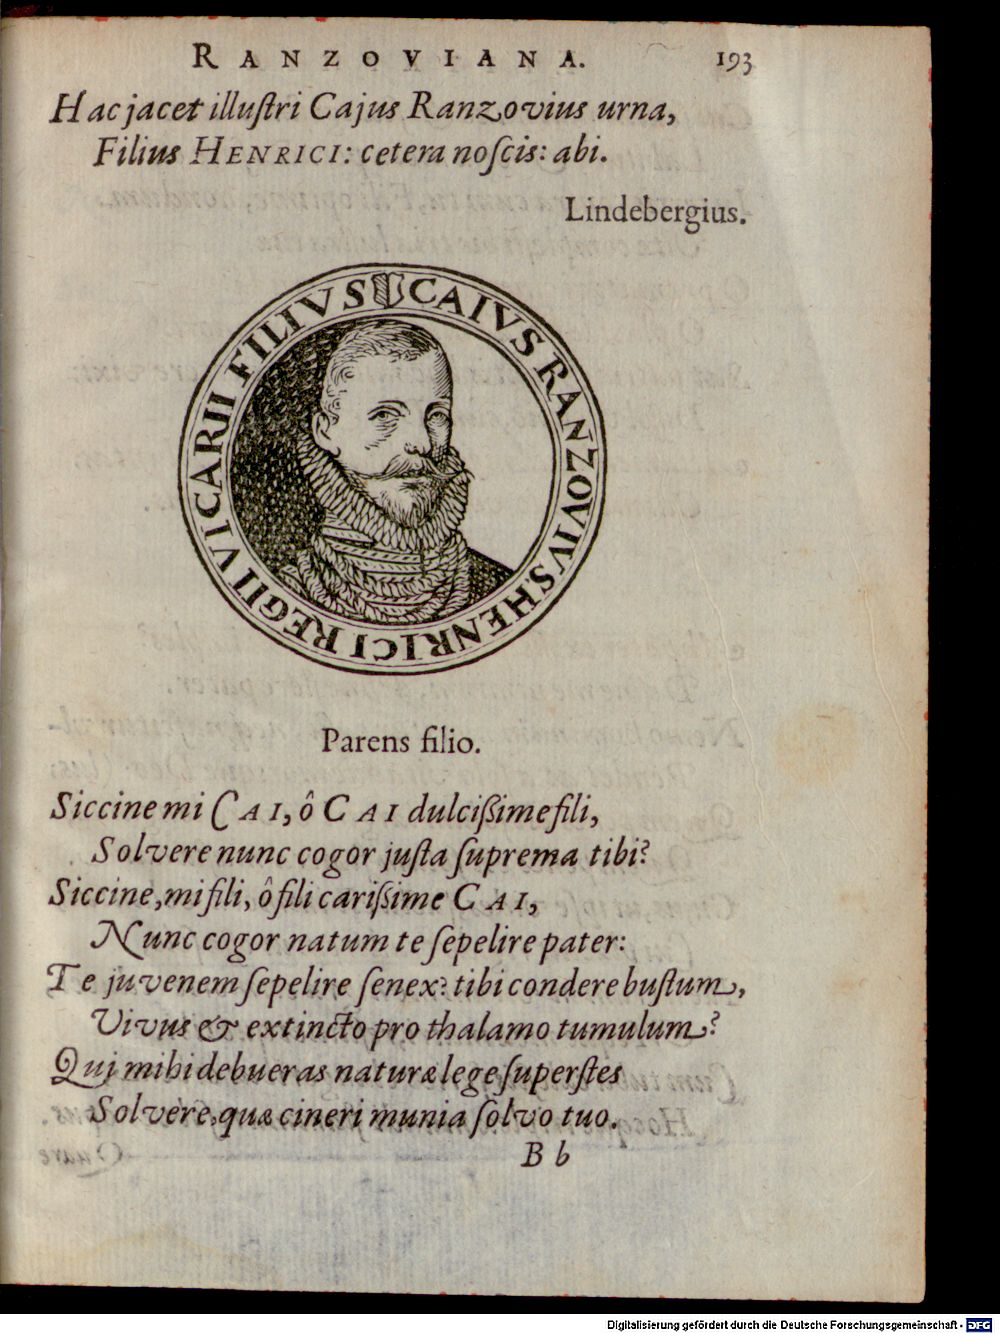 RANZOVIANA. 193
Hac jacet illuſtri Cajus Ranzovius urna,
Filius HENRICI: cetera noſcis: abi.
Lindebergius.
CAIVS RANZOVIVS HENRICI REGII VICARII FILIVS
Parens filio.
Siccine mi CAI, ô CAI dulciſſime fili,
Solvere nunc cogor juſta ſuprema tibi?
Siccine, mi fili, ô fili cariſſime CAI,
Nunc cogor natum te ſepelire pater:
Te juvenem ſepelire ſenex? tibi condere buſtum,
Vivus & extincto pro thalamo tumulum?
Qui mihi debueras naturæ lege ſuperſtes
Solvere, quæ cineri munia ſolvo tuo.
B b
Digitalisierung gefördert durch die Deutsche Forschungsgemeinschaft - DFG